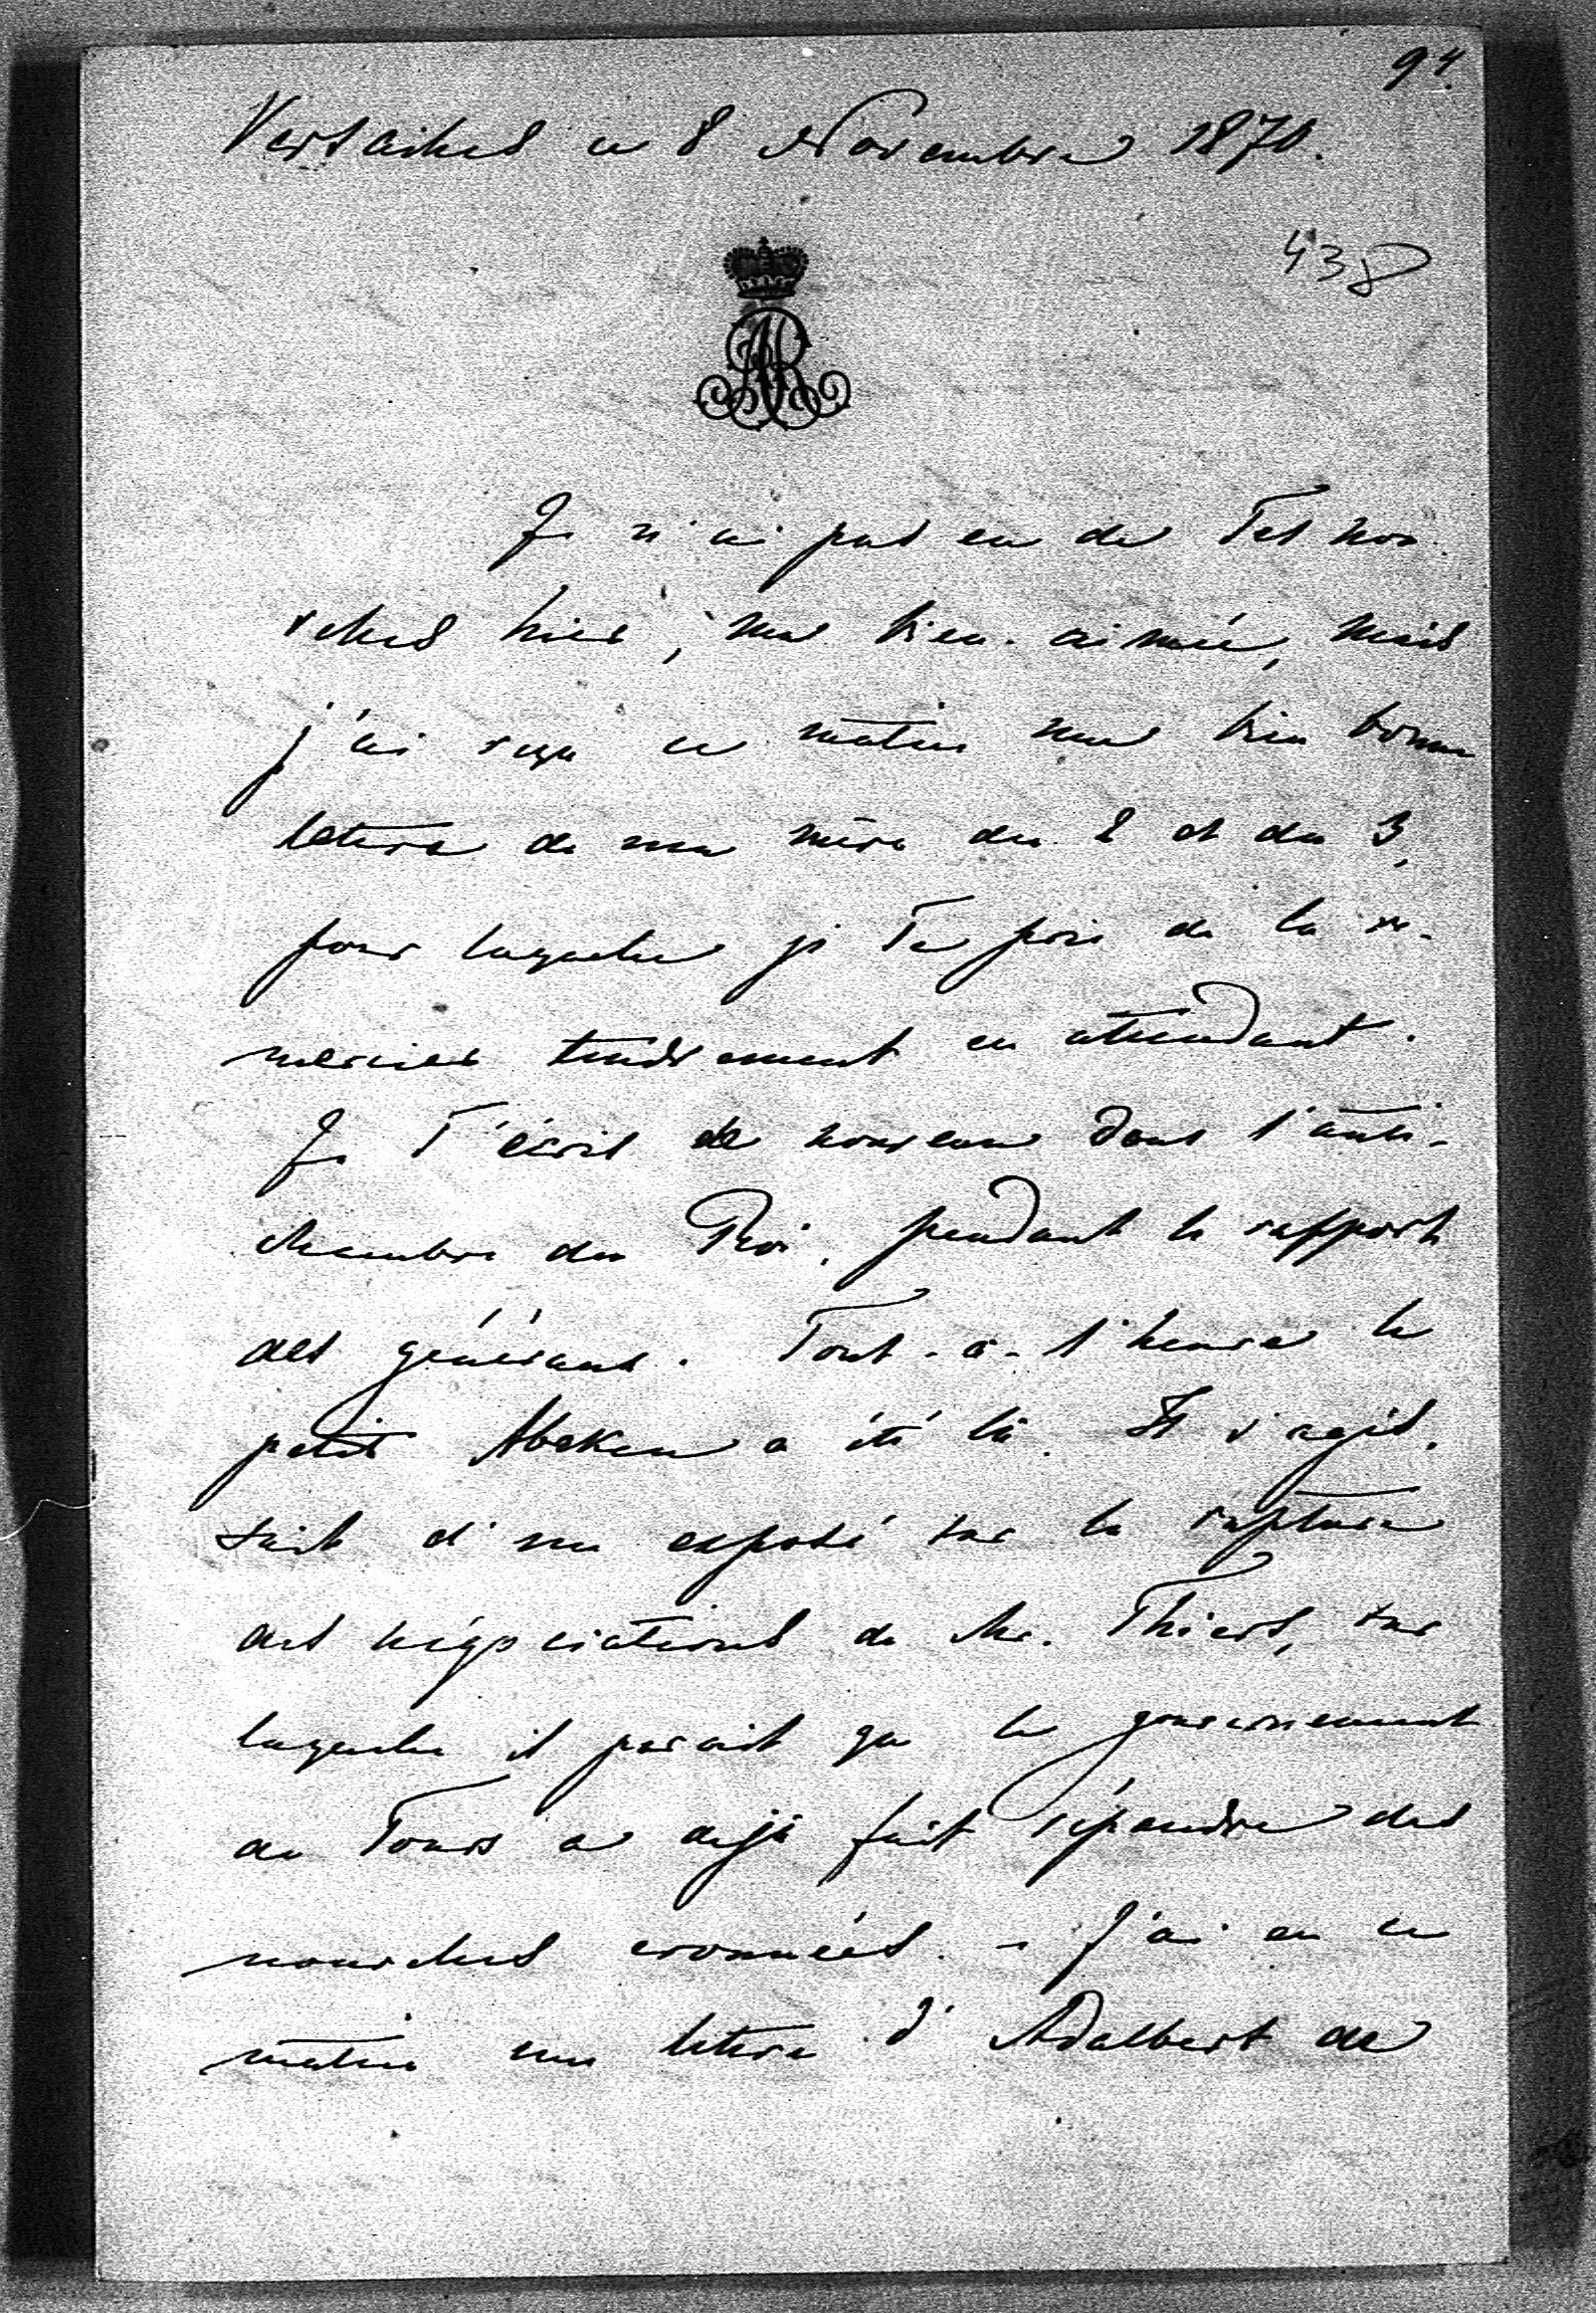 94.
Versailles ce 8 Novembre 1870.
438
AR
Je n'ai pas eu de Tes nou-
velles hier, ma bien-aimée, mais
j'ai reçu ce matin une bien bonne
lettre de ma mère du 2 et du 3,
pour laquelle je Te prie de la re-
mercier tendrement en attendant.
Je T'écris de nouveau dans l'anti-
chambre du Roi, pendant le rapport
des généraux. Tout-à-l'heure le
petit Abeken a été là. Il s'agis-
sait d'un exposé sur la rupture
des négociations de Mr. Thiers, sur
laquelle il parait que le gouvernement
de Tours a déjà fait répandre des
nouvelles erronnées. - J'ai eu ce
matin une lettre d'Adalbert de